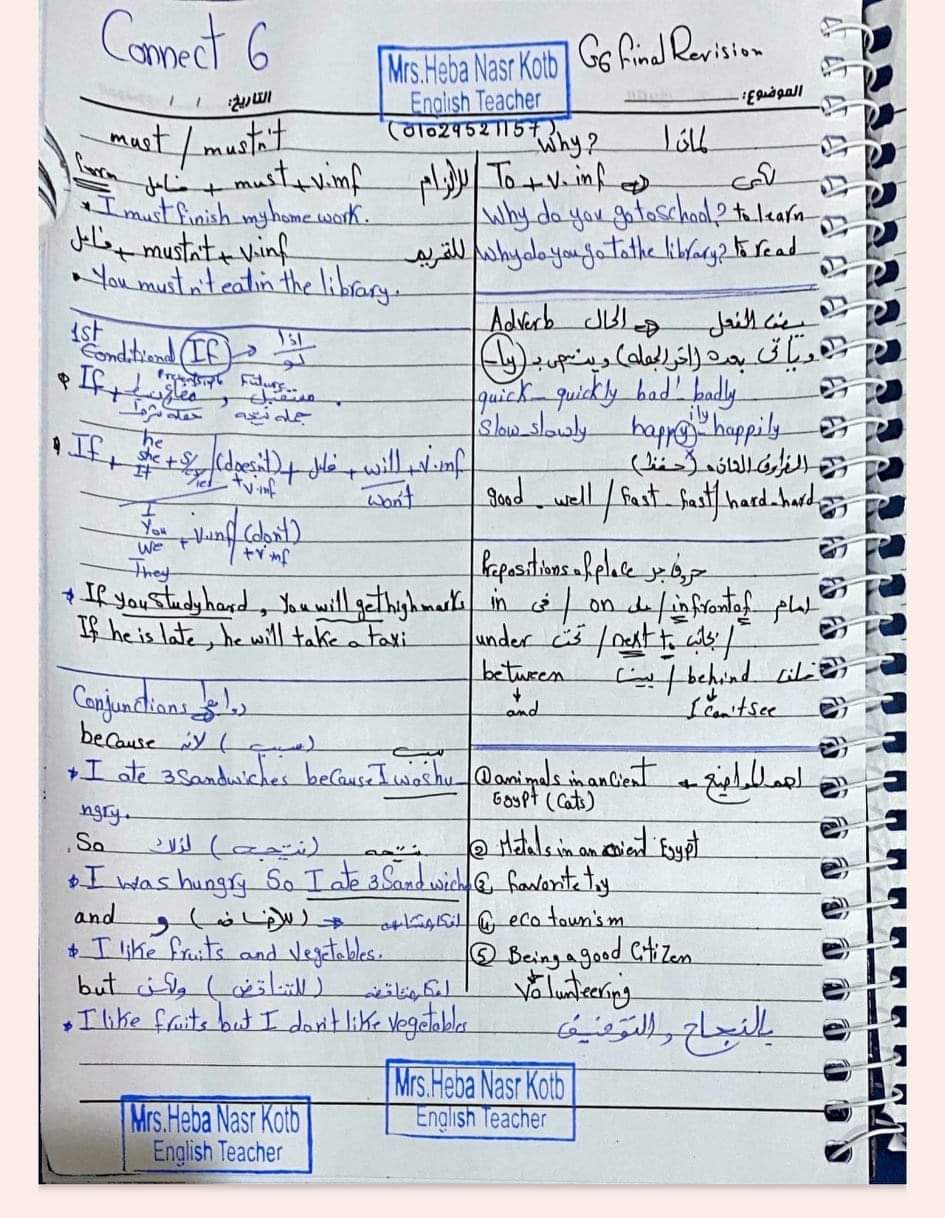 Connect 6
Mrs.Heba Nasr Kotb
English Teacher
G6 Final Revision
التاريخ: / /
الموضوع:
(01029521157)
must / mustn't
Form فاعل + must + v.inf للإلزام
* I must finish my home work.
فاعل + mustn't + v.inf للتحريم
• You mustn't eat in the library.
1st
Conditional If → اذا
لو
If + , مستقبل .
جملة نتيجة
If + he
she
It
+ s/es/ies /(doesn't) + فاعل + will + v.inf
+ v.inf won't
I
You
We
They
+ v.inf / (don't)
+ v.inf
* If you study hard, You will get high marks
If he is late, he will take a taxi
Conjunctions روابط
because لانه (سبب) سبب
* I ate 3 Sandwiches because I was hu
ngry.
So لذلك (نتيجة) نتيجه
• I was hungry So I ate 3 Sandwich
and و (للإضافة)
* I like fruits and vegetables.
but ولكن (للتناقض)
• I like fruits but I don't like vegetables
Why? لماذا
To + v.inf ⇒ لكى
Why do you go to school? to learn
Why do you go to the library? to read
Adverb الحال ⇒ يصف الفعل
ويأتى بعده (اخر الجملة) وينتهى بـ (ly-)
quick - quickly bad - badly
slow - slowly happy - happily
ily
(حفظ)
good - well / fast - fast / hard - hard
Prepositions of place حروف جر
in فى / on على / in front of امام
under تحت / next to بجانب /
between بين / behind خلف
and I can't see
اهم المواضيع
① animals in ancient
Egypt (Cats)
② Metals in ancient Egypt
③ favorite toy
④ eco tourism
⑤ Being a good Citizen
Volunteering
بالنجاح والتوفيق
Mrs.Heba Nasr Kotb
English Teacher
Mrs.Heba Nasr Kotb
English Teacher